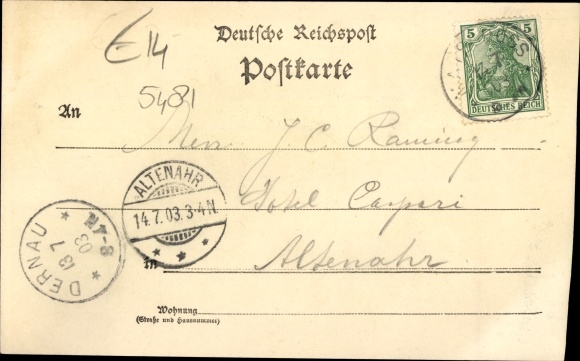 E14
5481
Deutsche Reichspost
Postkarte
5 5
DEUTSCHES REICH
An
Herrn J. C. Raming
Hotel Caspari
in Altenahr
ALTENAHR
14.7.03.3-4N.
DERNAU
13 7
03
7-8N
Wohnung
(Straße und Hausnummer)